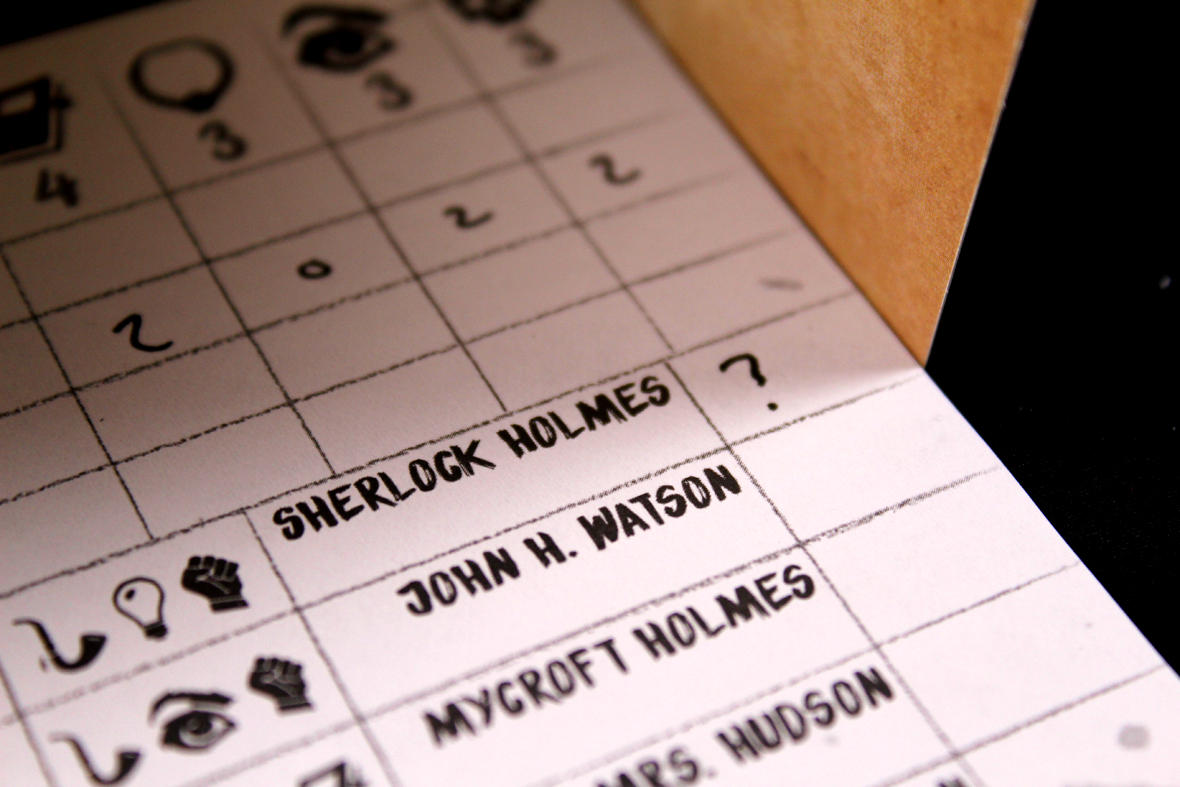 4 3 3 3
2 0 2 2
SHERLOCK HOLMES ?
JOHN H. WATSON
MYCROFT HOLMES
MRS. HUDSON